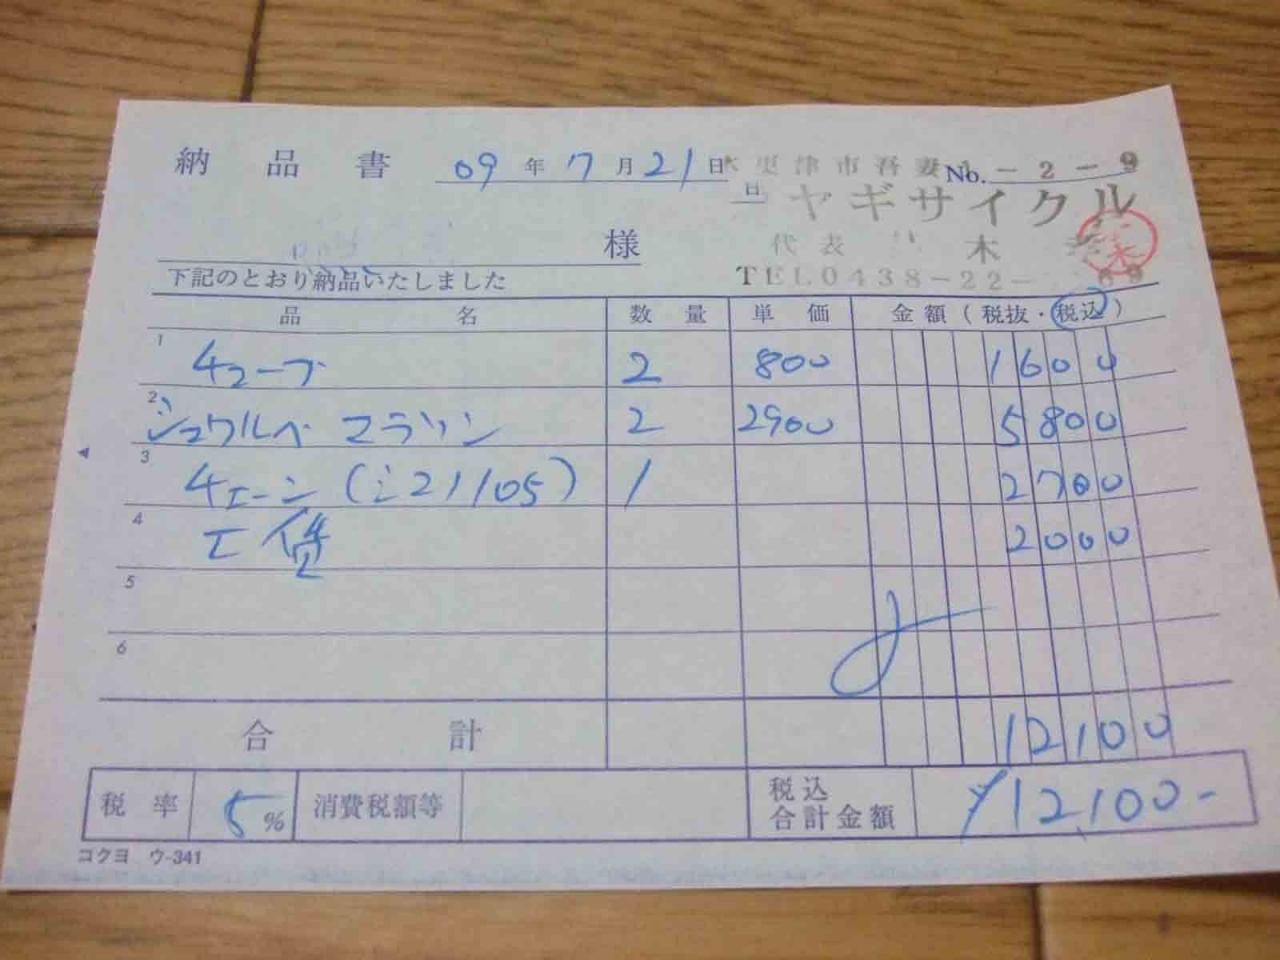 納品書 09年7月21日 No.
木更津市吾妻 -2-9
ヤギサイクル
様 代表 木
下記のとおり納品いたしました TEL0438-22-
品名 数量 単価 金額(税抜・税込)
1 チューブ 2 800 1600
2 シュワルベ マラソン 2 2900 5800
3 チェーン 1 2700
4 工賃 2000
5
6
合計 12100
税率 5% 消費税額等 税込合計金額 ¥12,100-
コクヨ ウ-341